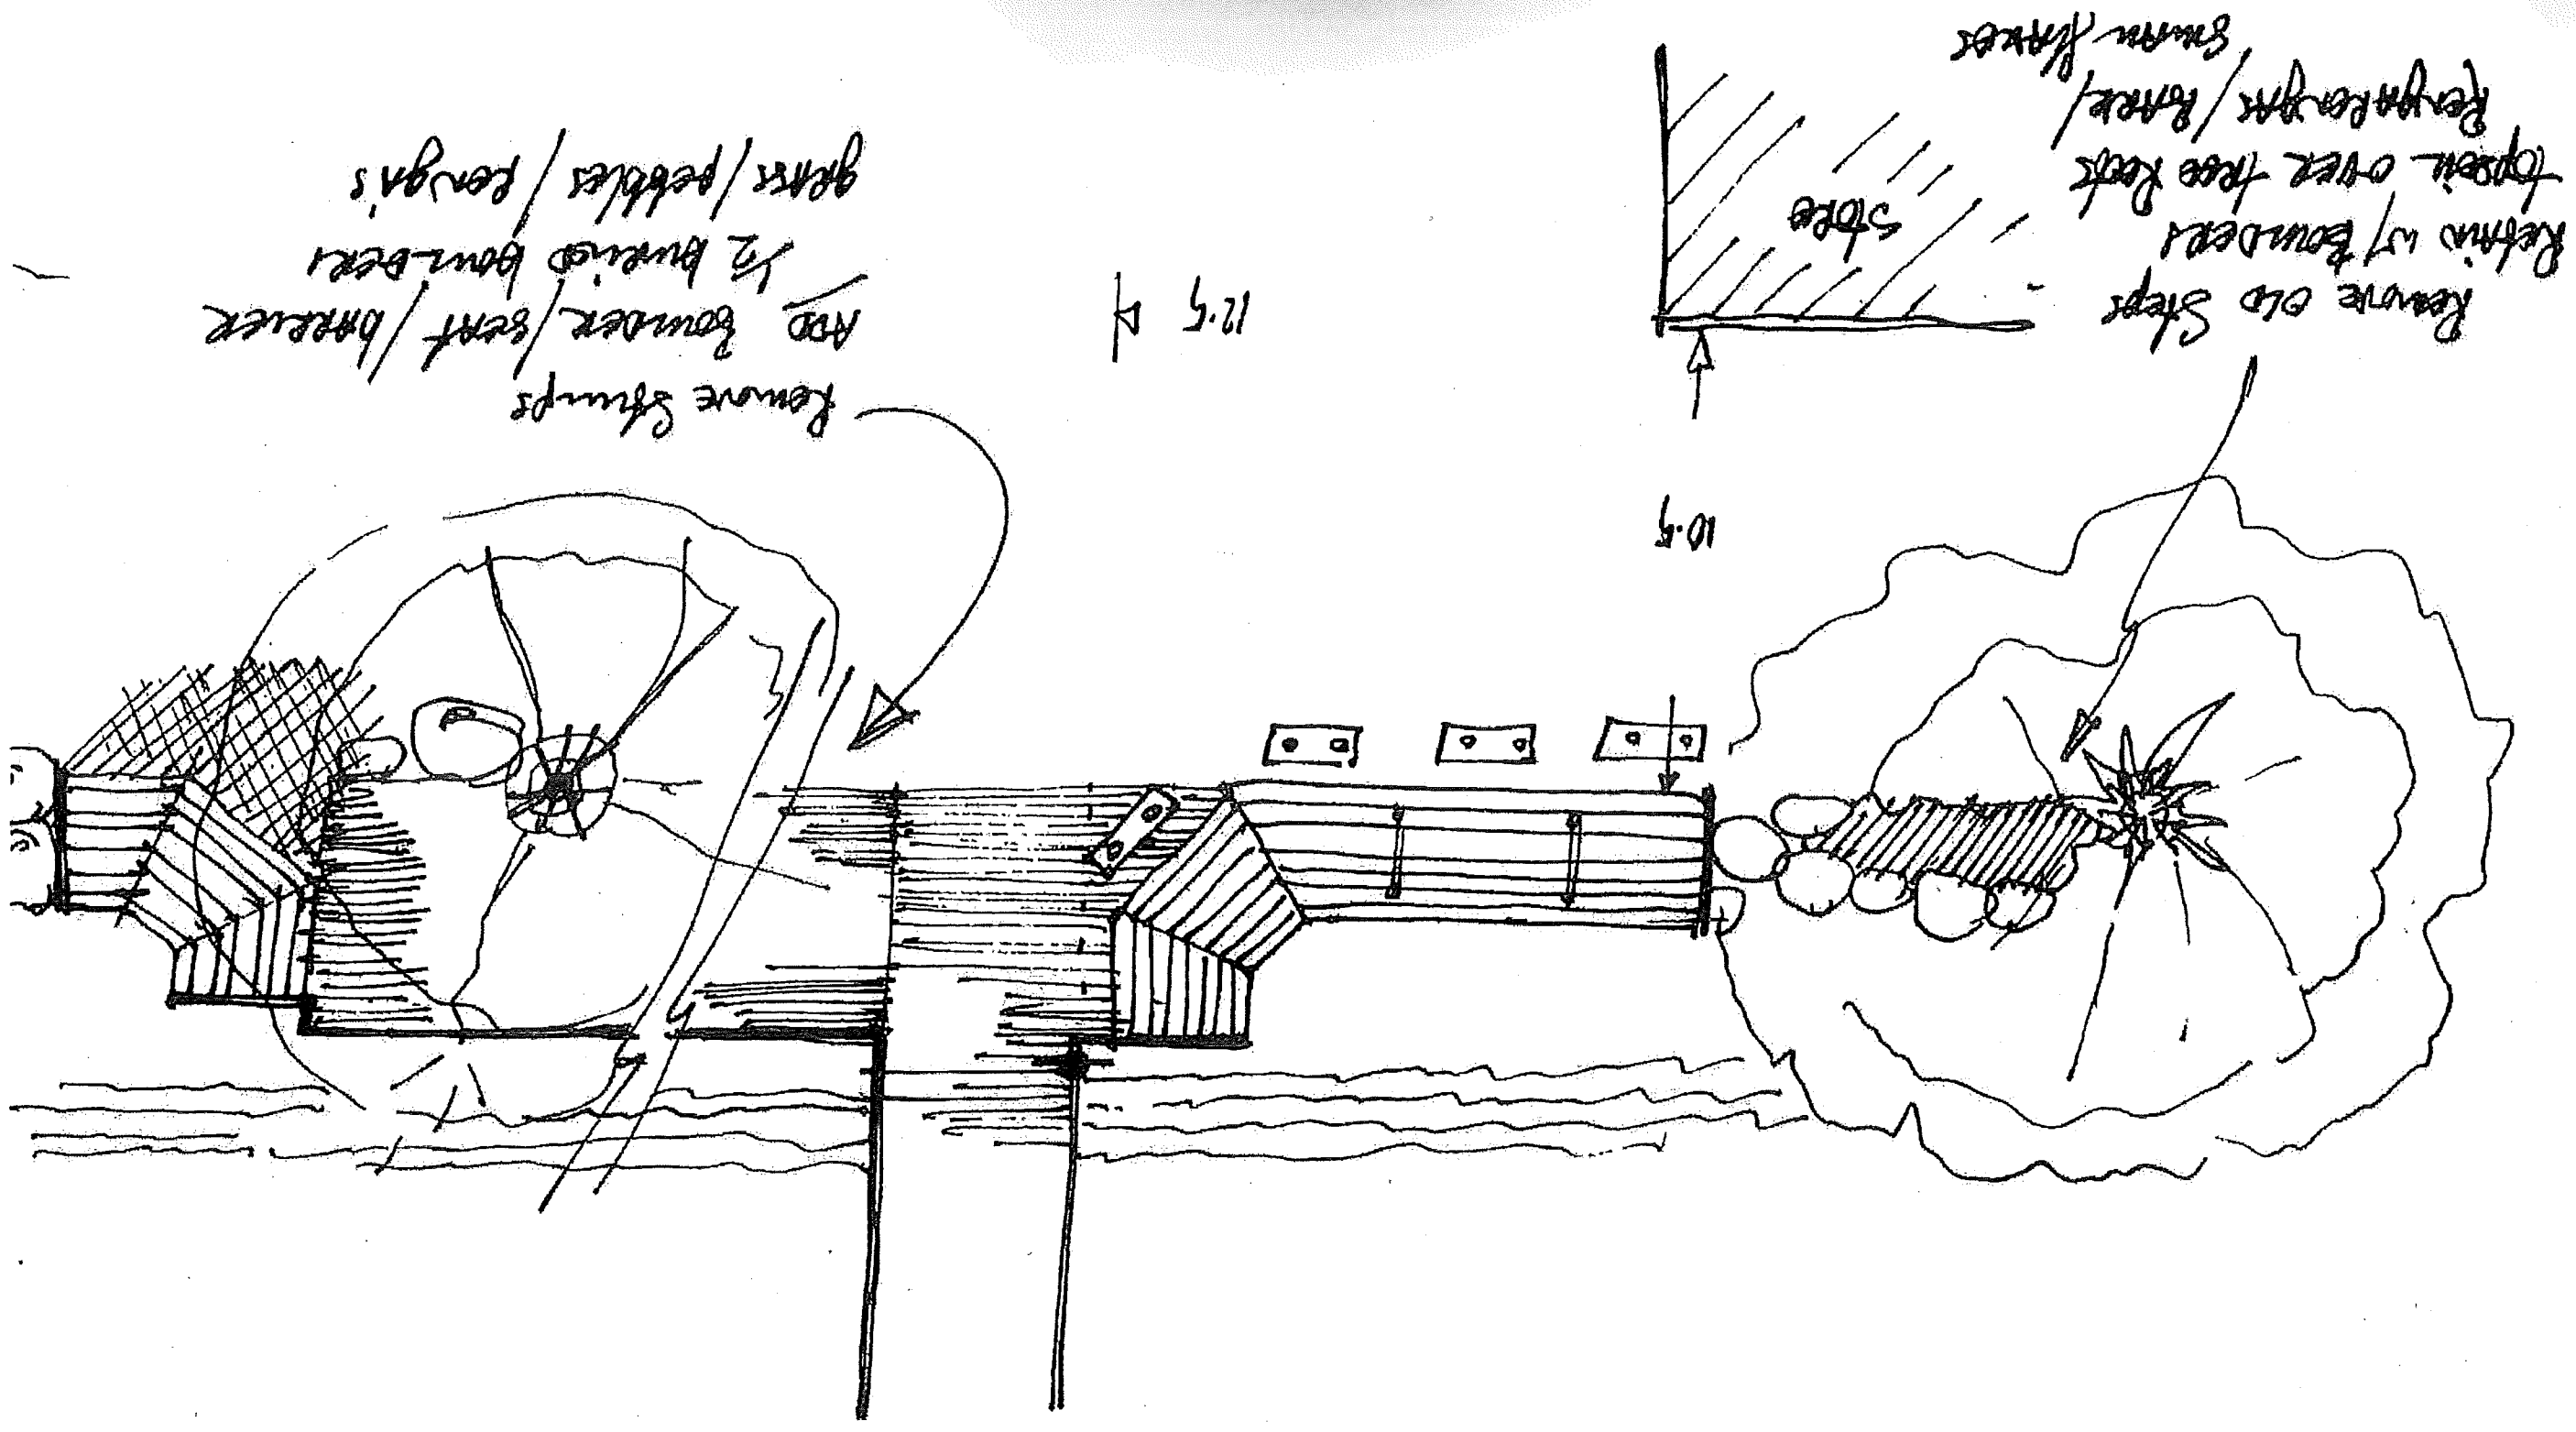 Remove OLD Steps
Retain w/ BOULDERS
topsoil over tree Roots
Rengarengas / BARK /
SMALL flaxes
Store
10.5
12.5
Remove Stumps
ADD BOULDER / SEAT / BARRIER
1/2 buried boulders
grass / pebbles / renga's